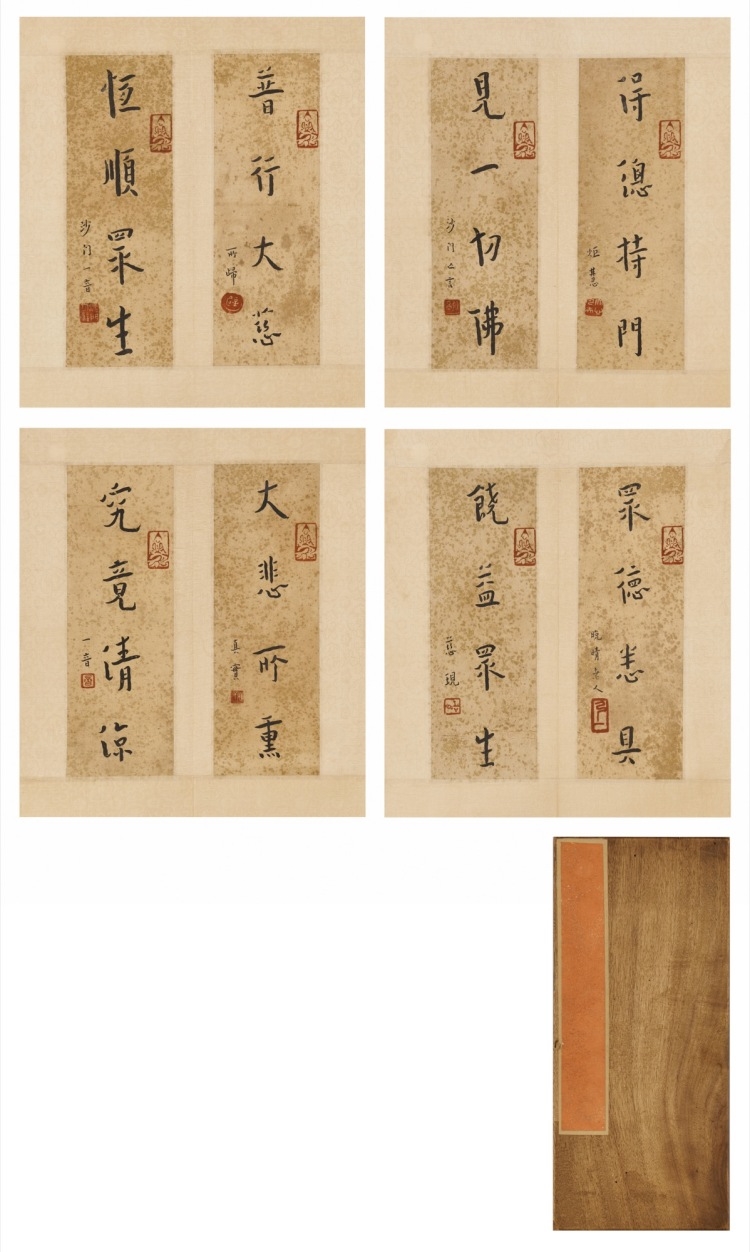 普行大慈
所歸
恆順眾生
沙門一音
得總持門
見一切佛
沙門亡言
大悲所熏
真實
究竟清涼
一音
眾德悉具
晚晴老人
饒益眾生
慈現